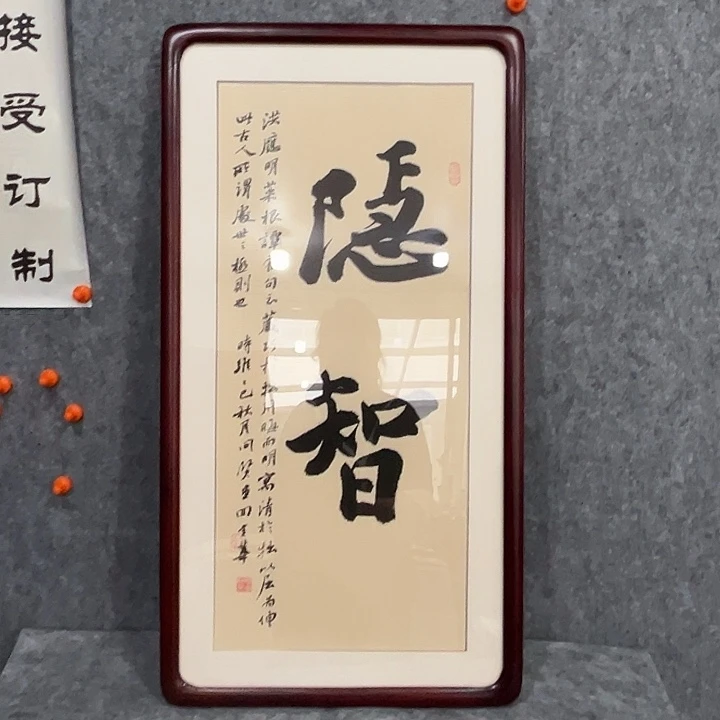 接受订制
隐智
洪應明菜根譚有句云藏巧於拙用晦而明寓清於濁以屈為伸
此古人所謂處世之極則也 時維乙巳秋月